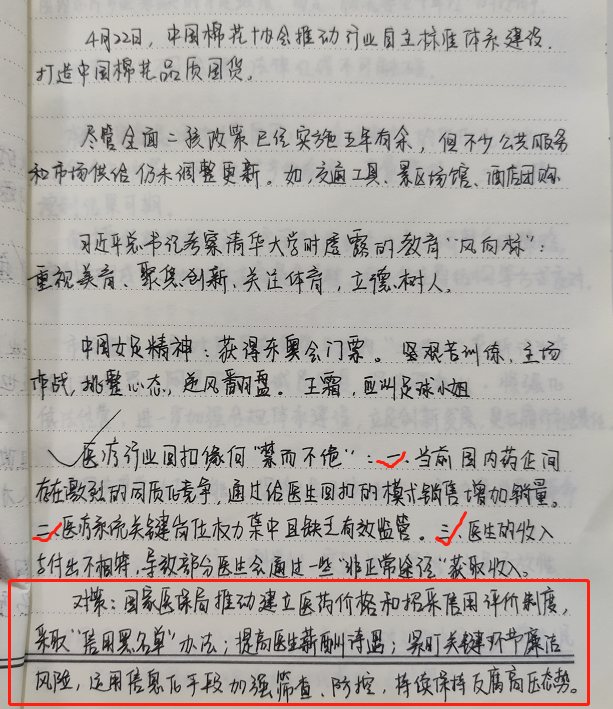 4月22日,中国棉花协会推动行业自主标准体系建设,
打造中国棉花品质国货。
尽管全面二孩政策已经实施五年有余,但不少公共服务
和市场供给仍未调整更新。如,交通工具、景区场馆、酒店团购
习近平总书记考察清华大学时透露的教育“风向标”:
重视美育、聚焦创新、关注体育,立德树人。
中国女足精神:获得东奥会门票。坚艰苦训练、主场
作战,调整心态,逆风翻盘。王霜,亚洲足球小姐
医疗行业回扣缘何“禁而不绝”:一、当前国内药企间
存在激烈的同质化竞争,通过给医生回扣的模式销售增加销量。
二、医疗系统关键岗位权力集中且缺乏有效监管。三、医生的收入
与付出不相符,导致部分医生会通过一些“非正常途径”获取收入。
对策:国家医保局推动建立医药价格和招采信用评价制度,
采取“信用黑名单”办法;提高医生薪酬待遇;紧盯关键环节廉洁
风险,运用信息化手段加强筛查、防控,持续保持反腐高压态势。